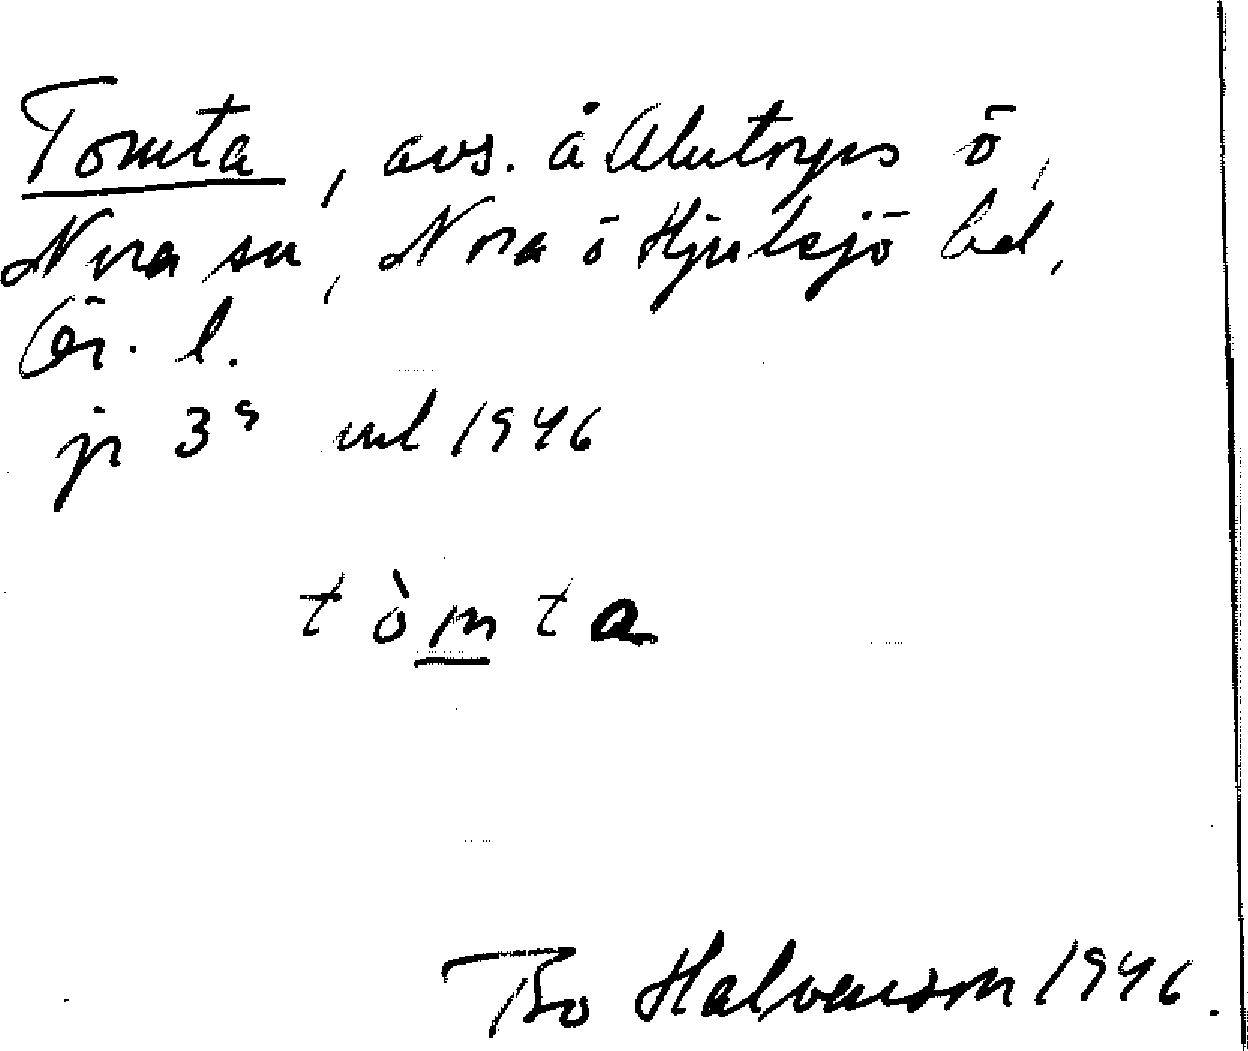 Tomta, avs. å Alntorps ö,
Nora sn, Nora o Hjulsjö bd,
Ör. l.
jr 3⁹ ml 1946
tòmta
Bo Halvarson 1946.